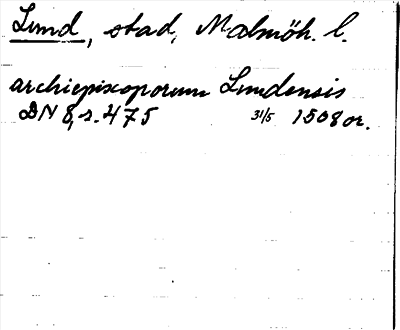 Lund, stad, Malmöh. l.
archiepiscoporum Lundensis
DN 8, s. 475 31/5 1508 or.